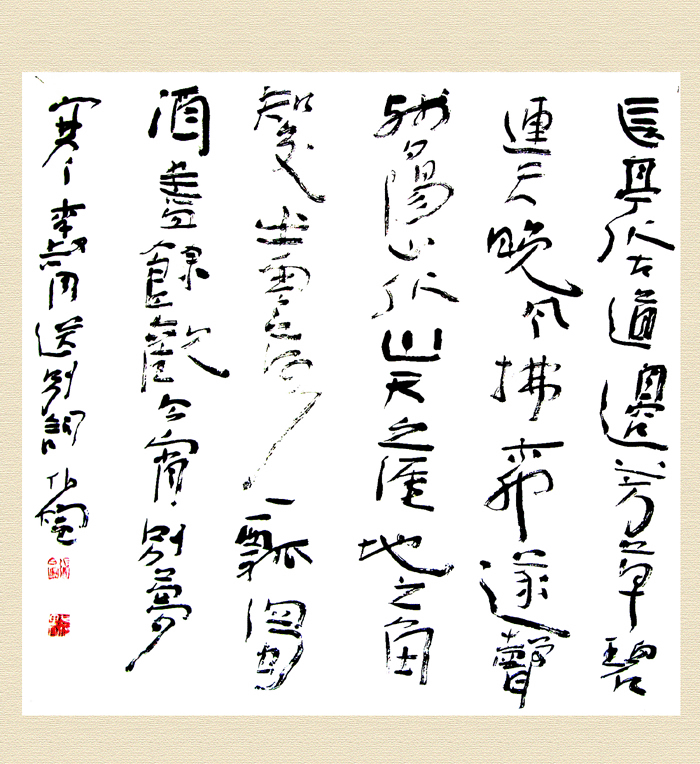 長亭外古道邊芳草碧
連天晚風拂柳篴聲
殘夕陽山外山天之涯地之角
知交半零落一瓢濁
酒盡餘歡今宵別夢
寒李叔同送別詞